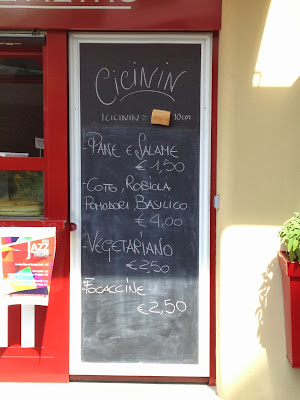 CICININ
1 CICININ = 10cm
- PANE E SALAME
€ 1,50
- COTTO, ROBIOLA
POMODORI, BASILICO
€ 4,00
- VEGETARIANO
€ 2,50
- FOCACCINE
€ 2,50
JAZZ